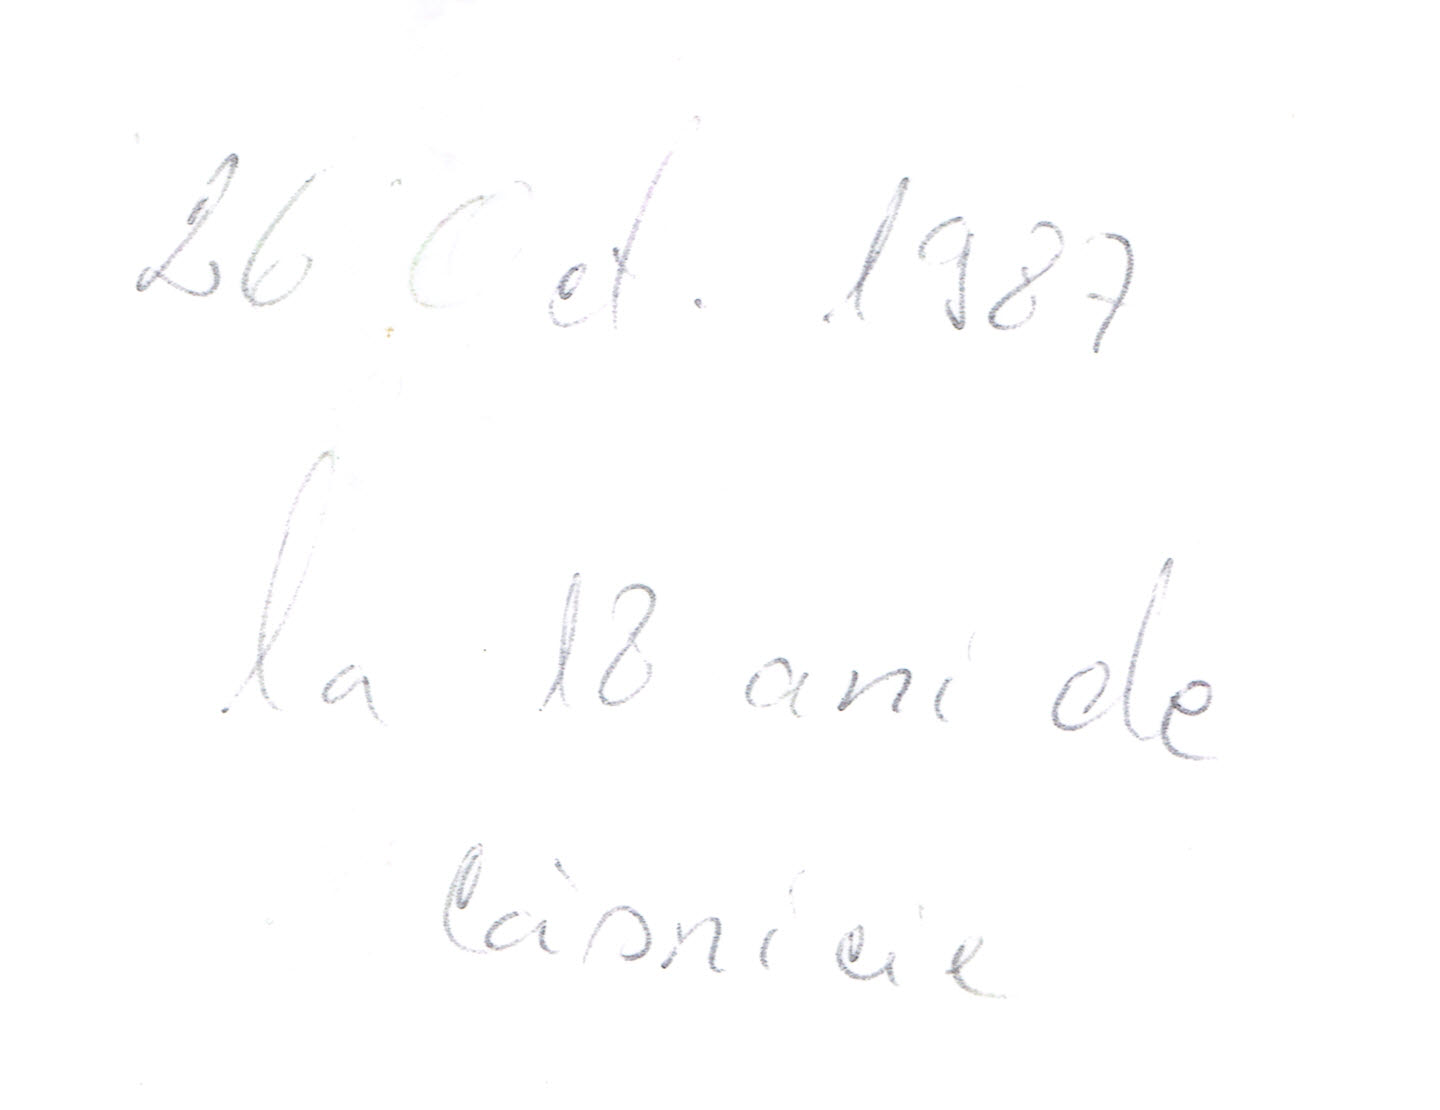 26 Oct. 1987
la 18 ani de
căsnicie